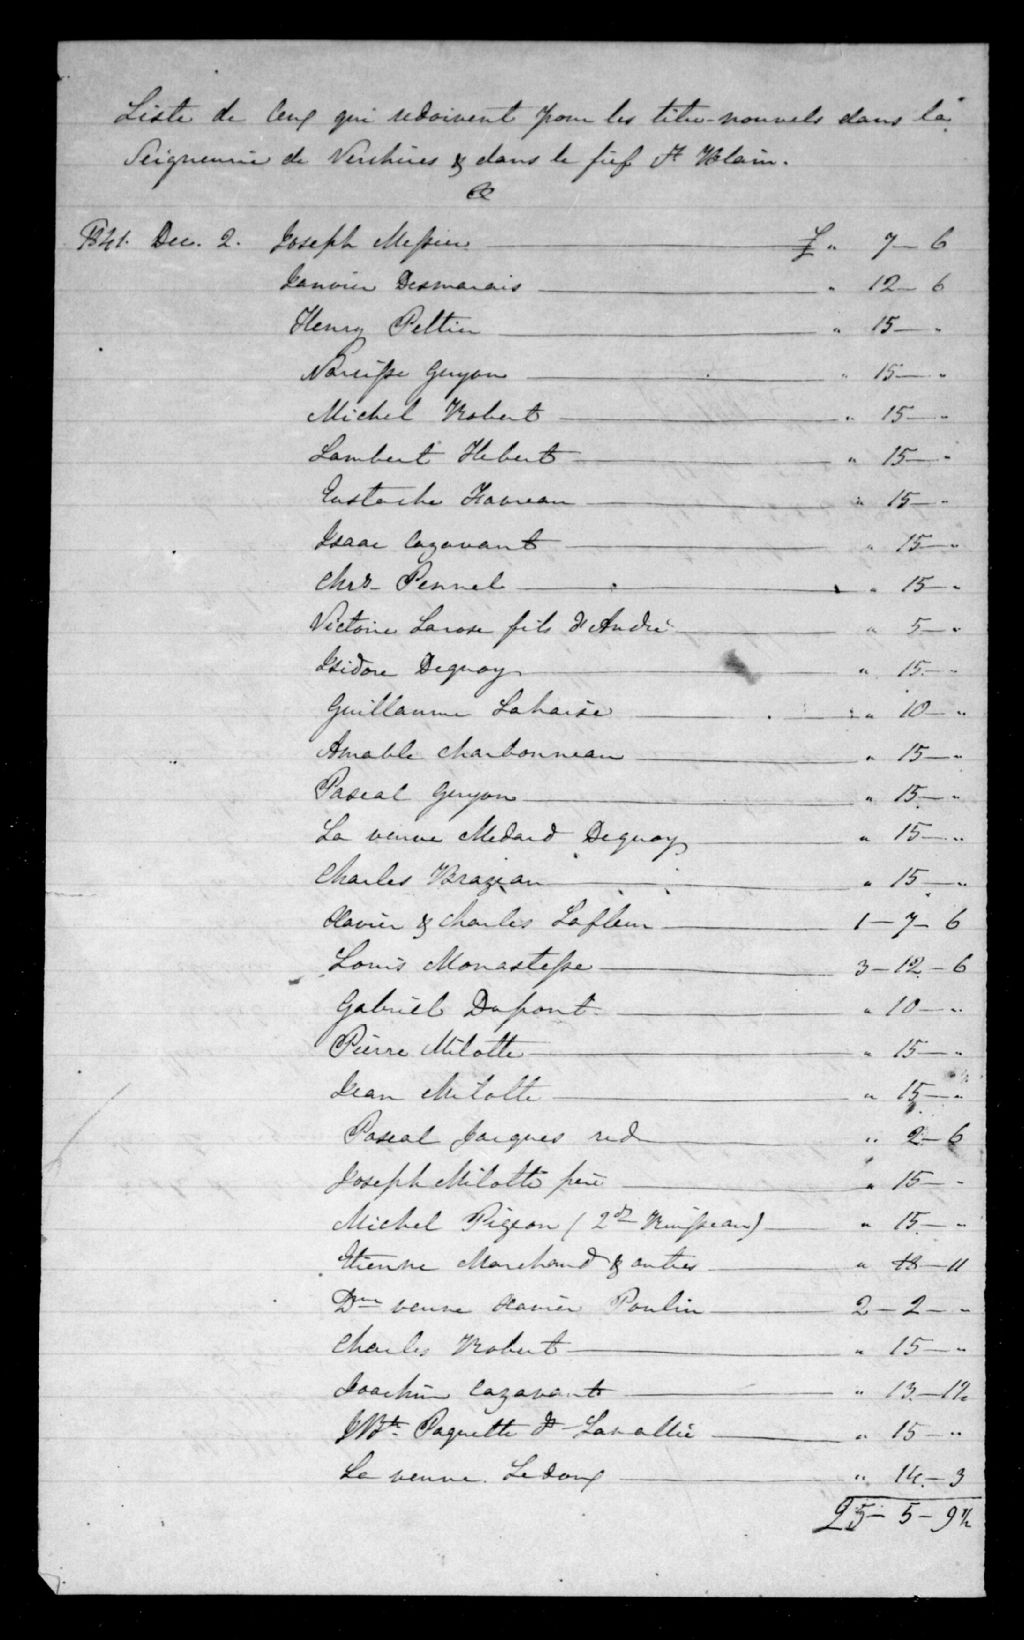 Liste de ceux qui redoivent pour les titre-nouvels dans la
Seigneurie de Verchères & dans le fief St Blain.
Dec. 2. Joseph Messier £ " 7 — 6
Janvier Desmarais " 12 — 6
Henry Peltier " 15 — "
Narcisse Guyon " 15 — "
Michel Robert " 15 — "
Lambert Hebert " 15 — "
Eustache Favreau " 15 — "
Isaac Cazavant " 15 — "
Chrs Pennel " 15 — "
Victoire Larose fils d'André " 5 — "
Isidore Deguay " 15 — "
Guillaume Lahaise " 10 — "
Amable Charbonneau " 15 — "
Pascal Guyon " 15 — "
La veuve Medard Deguay " 15 — "
Charles Brazeau " 15 — "
Xavier & Charles Lafleur 1 — 7 — 6
Louis Monastesse 3 — 12 — 6
Gabriel Dupont " 10 — "
Pierre Milotte " 15 — "
Jean Milotte " 15 — "
Pascal Jacques red " 2 — 6
Joseph Milotte père " 15 — "
Michel Pigeon (2d Ruisseau) " 15 — "
Etienne Marchand & autres " 13 — 11
Dme veuve Xavier Poulin 2 — 2 — "
Charles Robert " 15 — "
Joachim Cazavant " 13 — 1½
JBte Paquette dt Lavallée " 15 — "
La veuve Ledoux " 14 — 3
25 — 5 — 9½